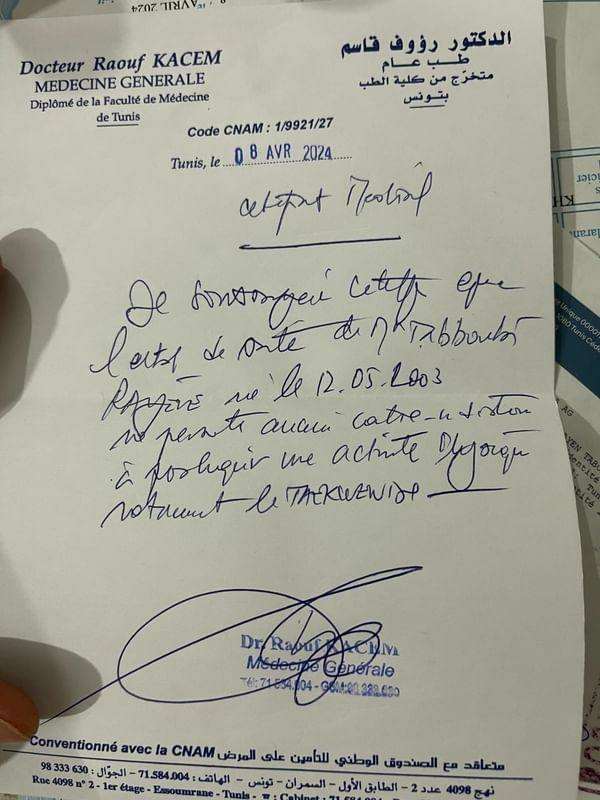 AVRIL 2024
Docteur Raouf KACEM
MEDECINE GENERALE
Diplômé de la Faculté de Médecine
de Tunis
الدكتور رؤوف قاسم
طب عام
متخرّج من كلية الطب
بتونس
Code CNAM : 1/9921/27
Tunis, le 08 AVR 2024
Certificat Médical
Je soussigné certifie que
l'état de santé de Mr Tabboubi
né le 12.05.2003
ne présente aucune contre-indication
à pratiquer une activité physique
notamment le TAEKWENDO
Dr. Raouf KACEM
Médecine Générale
Tél: 71.584.004 - GSM:
Conventionné avec la CNAM متعاقد مع الصندوق الوطني للتأمين على المرض
نهج 4098 عدد 2 - الطابق الأول - السمران - تونس - الهاتف : 71.584.004 - الجوّال : 98 333 630
Rue 4098 n° 2 - 1er étage - Essoumrane - Tunis - Cabinet : 71.584